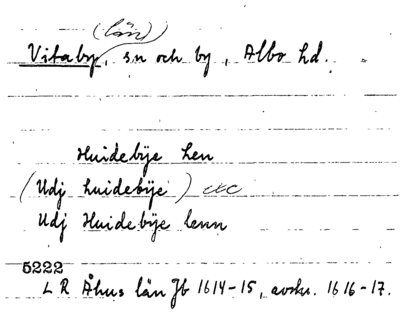 (län)
Vitaby, sn och by, Albo hd.
Huidebÿe hen
(Udj huidebÿe) etc
Udj Huidebÿe lenn
5222
L R Åhus län Jb 1614-15, avskr. 1616-17.